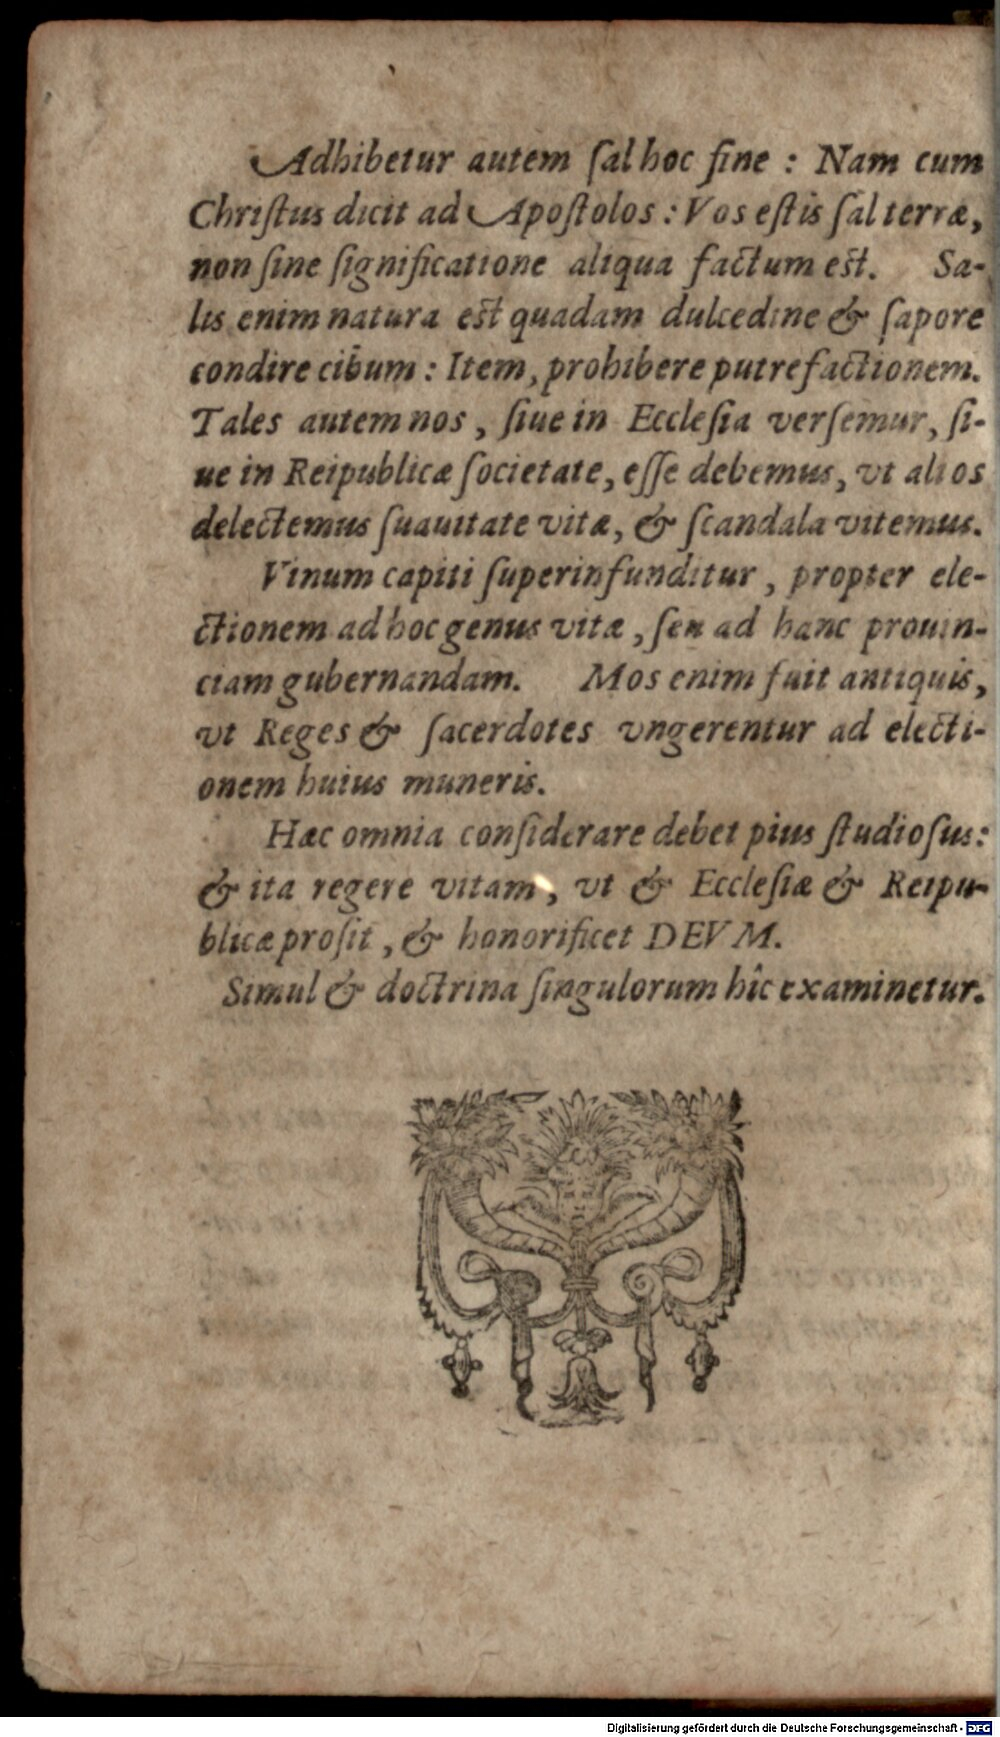 Adhibetur autem ſal hoc fine : Nam cum
Chriſtus dicit ad Apoſtolos : Vos eſtis ſal terræ,
non ſine ſignificatione aliqua factum eſt. Sa-
lis enim natura eſt quadam dulcedine & ſapore
condire cibum : Item, prohibere putrefactionem.
Tales autem nos, ſiue in Eccleſia verſemur, ſi-
ue in Reipublicæ ſocietate, eſſe debemus, vt alios
delectemus ſuauitate vitæ, & ſcandala vitemus.
Vinum capiti ſuperinfunditur, propter ele-
ctionem ad hoc genus vitæ, ſeu ad hanc prouin-
ciam gubernandam. Mos enim fuit antiquis,
vt Reges & ſacerdotes vngerentur ad electi-
onem huius muneris.
Hæc omnia conſiderare debet pius ſtudioſus:
& ita regere vitam, vt & Eccleſiæ & Reipu-
blicæ proſit, & honorificet DEVM.
Simul & doctrina ſingulorum hîc examinetur.
Digitalisierung gefördert durch die Deutsche Forschungsgemeinschaft - DFG